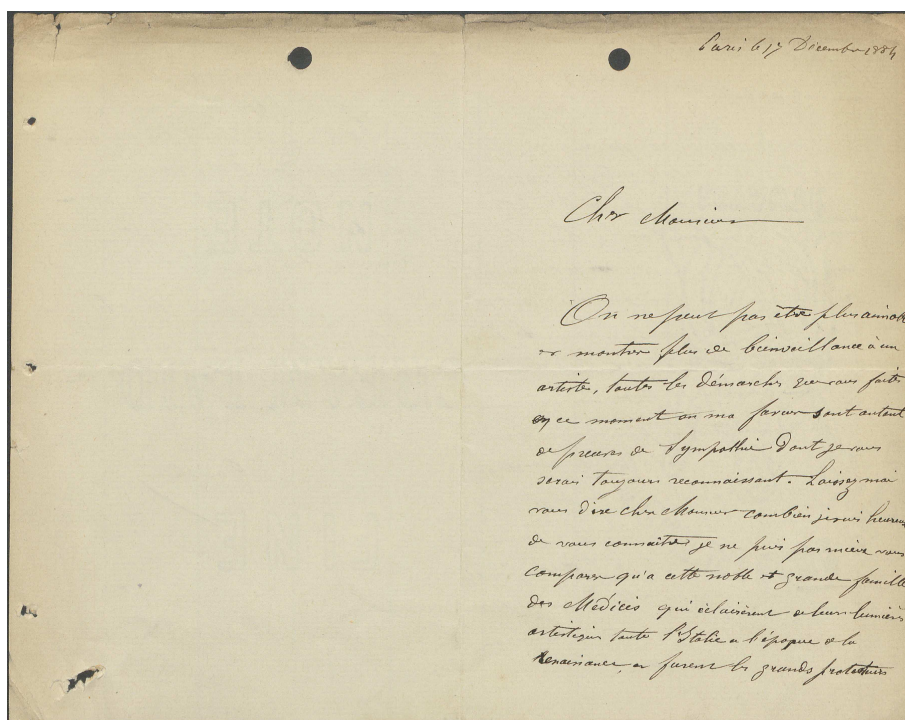 Paris le 17 Décembre 1884
Cher Monsieur
On ne peut pas être plus aimable
et montrer plus de bienveillance à un
artiste, toutes les démarches que vous faites
en ce moment en ma faveur sont autant
de preuves de Sympathie dont je vous
serai toujours reconnaissant. Laissez moi
vous dire cher Monsieur combien je suis heureux
de vous connaître je ne puis pas mieux vous
comparer qu'a cette noble et grande famille
des Médicis qui éclairèrent de leurs lumières
artistiques toute l'Italie a l'époque de la
Renaissance et furent les grands protecteurs